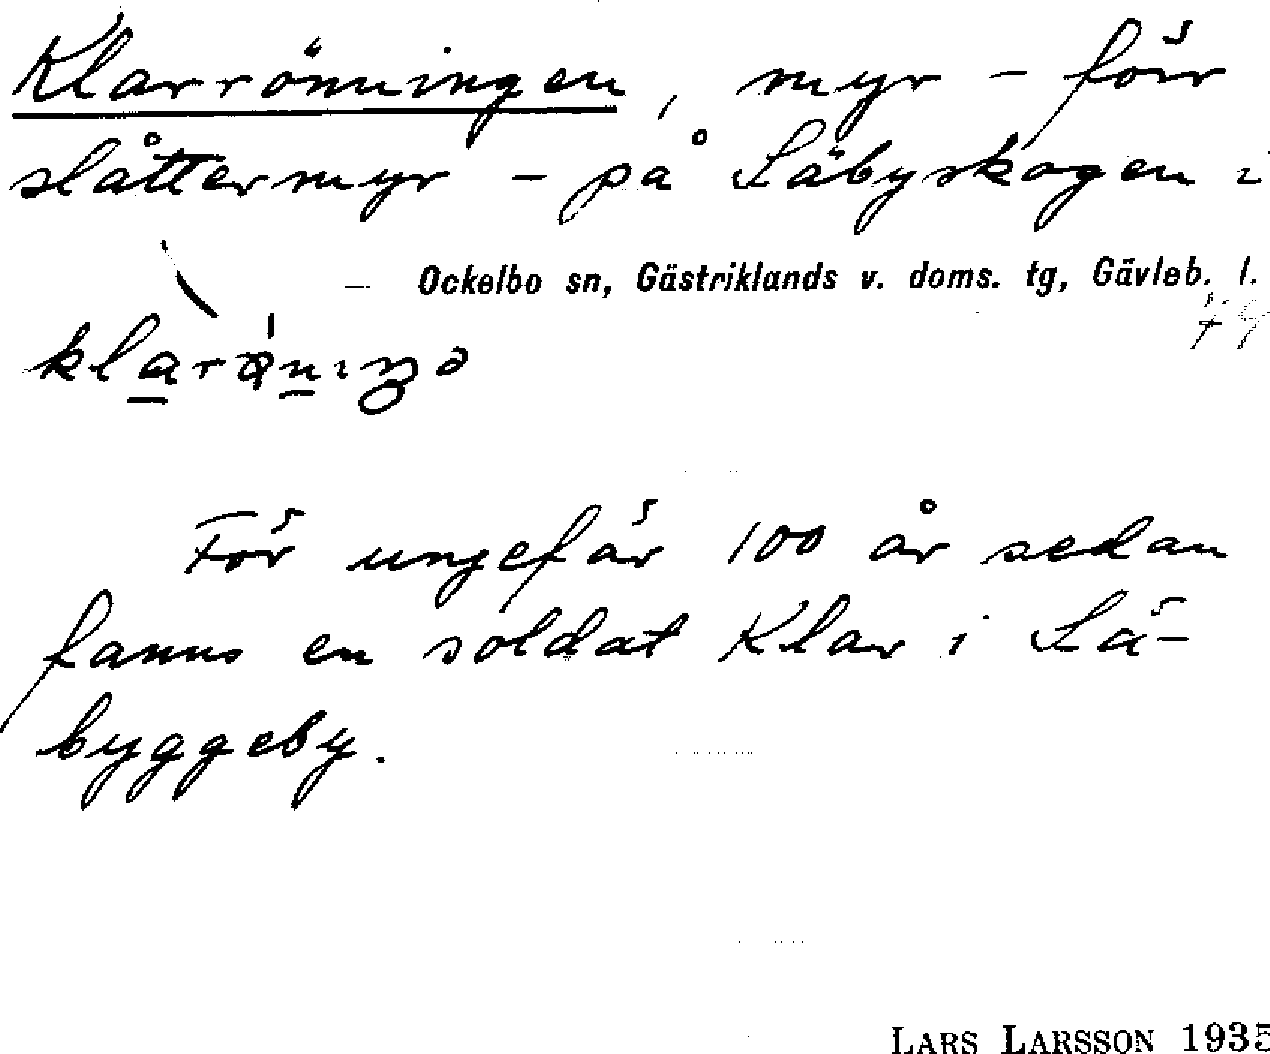 Klarrönningen, myr - förr
slåttermyr - på Läbyskogen i
— Ockelbo sn, Gästriklands v. doms. tg, Gävleb. l.
79
För ungefär 100 år sedan
fanns en soldat Klar i Lä-
byggeby.
LARS LARSSON 1935